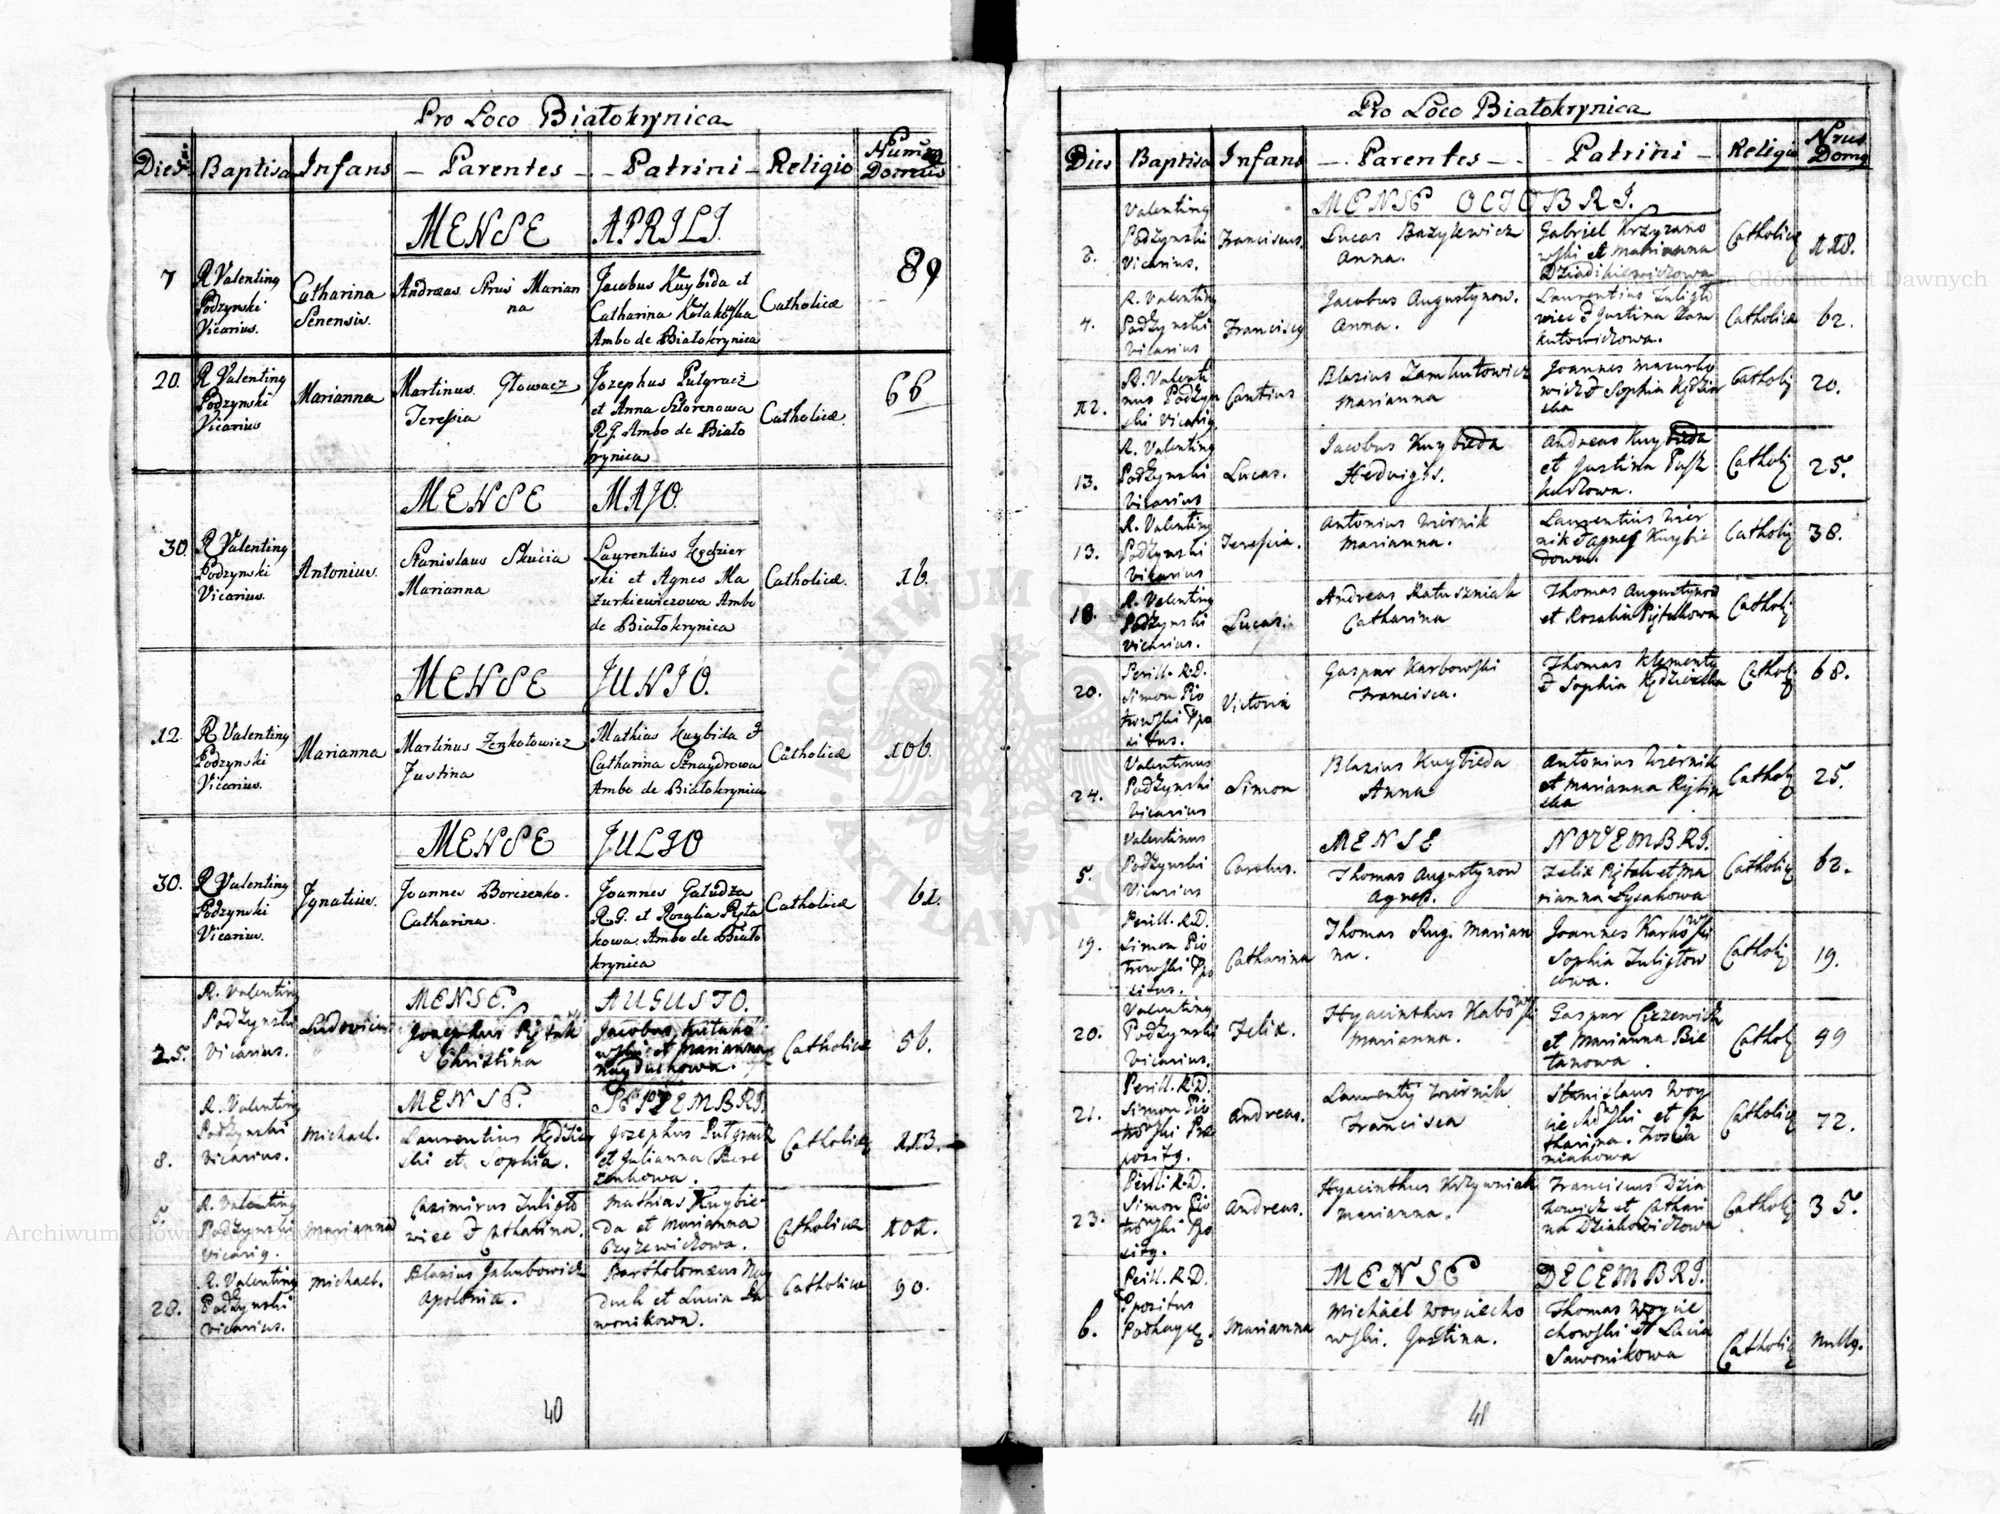 Pro Loco Białokrynica
Dies Baptisa Infans Parentes Patrini Religio Num Domus
MENSE APRILI.
7
R Valentinq
Podzynski
Vicarius.
Catharina
Senensis.
Andreas Prus Marian
na
Jacobus Kuybida et
Catharina Kołakoska
Ambo de Białokrynica
Catholicæ
89
20.
R Valentinq
Podzynski
Vicarius
Marianna
Martinus Głowacz
Teresia
Jozephus Pulgracz
et Anna Sztorenowa
R.G. Ambo de Biało
krynica
Catholicæ.
66
MENSE MAJO.
30.
R Valentinq
Podzynski
Vicarius.
Antonius.
Stanislaus Skucia
Marianna
Laurentius Kędzier
ski et Agnes Ma
zurkiewiczowa Ambo
de Białokrynica
Catholicæ.
16.
MENSE JUNIO.
12
R Valentinq
Podzynski
Vicarius.
Marianna
Martinus Zenkotowicz
Justina
Mathias Kuybida &
Catharina Sznaydrowa
Ambo de Białokrynica
Catholicæ
106.
MENSE JULIO
30.
R Valentinq
Podzynski
Vicarius.
Ignatius.
Joannes Borczenko.
Catharina.
Joannes Gałudza
R.G. et Rozalia Pięta
kowa. Ambo de Biało
krynica
Catholicæ
61.
MENSE. AUGUSTO.
25.
R. Valentinq
Podżynski
Vicarius.
Ludovicus
Josephus Piętak
Christina
Jacobus Kułako
wski et Marianna
Nayduchowa.
Catholicæ
56.
MENSE. SEPTEMBRI.
8.
R. Valentinq
Podżynski
Vicarius.
Michael.
Laurentius Kędzier
ski et Sophia.
Jozephus Pulgracz
et Julianna Bore
zenkowa.
Catholicæ
113.
5.
R. Valentinq
Podżynski
Vicariq.
Marianna
Casimirus Juligło
wiec & Catharina.
Mathias Kuybie
da et Marianna
Czyżewiczowa.
Catholicæ
101.
28.
R. Valentinq
Podżynski
Vicarius.
Michael.
Blasius Jakubowicz
Apolonia.
Bartholomæus Nay
duch et Lucia Sa
wonikowa.
Catholicæ
90.
40
Pro Loco Białokrynica
Dies Baptisa Infans Parentes Patrini Religio Nrus Domq
MENSE OCTOBRI.
Valentinq
Podżynski
Vicarius.
Franciscus.
Lucas Bazylewicz
Anna.
Gabriel Krzyzano
wski et Marianna
Dziadikiewiczowa
Catholicæ
118.
4.
R. Valentinq
Podżynski
Vicarius
Franciscq
Jacobus Augustynow.
Anna.
Laurentius Juligło
wiec & Justina Zam
kutowiczowa.
Catholicæ
62.
12.
R. Valenti
nus Podżyn
ski Vicariq.
Cantius
Blasius Zamkutowicz
Marianna
Joannes Mazurko
wicz & Sophia Kędzier
ska
Catholiq
20.
13.
R. Valentinq
Podżynski
Vicarius
Lucas.
Jacobus Kuybieda
Hedvigis.
Andreas Kuybieda
et Justina Pusz
karzowa.
Catholiq
25.
13.
R. Valentinq
Podżynski
Vicarius
Teressia.
Antonius Wiernik
Marianna.
Laurentius Wier
nik & Agnes Kuybie
dowa.
Catholiq
38.
18.
R. Valentinq
Podżynski
Vicarius.
Lucas.
Andreas Ratuszniak
Catharina
Thomas Augustynow
et Rosalia Piętakowa
Catholiq
20.
Perill. R.D.
Simon Pio
trowski Ppo
situs.
Victoria
Gaspar Karbowski
Francisca.
Thomas Klementy
& Sophia Kędzierska
Catholiq
68.
24.
Valentinus
Podżynski
Vicarius
Simon
Blasius Kuybieda
Anna
Antonius Wiernik
et Marianna Rybin
ska
Catholiq
25.
MENSE NOVEMBRI.
5.
Valentinus
Podżynski
Vicarius
Carolus.
Thomas Augustynow
Agnes.
Felix Piętak et Ma
rianna Łysakowa
Catholiq
62.
19.
Perill. R.D.
Simon Pio
trowski Ppo
situs.
Catharina
Thomas Rug. Marian
na.
Joannes Karbowski
Sophia Juligłow
cowa.
Catholiq
19.
20.
Valentinq
Podżynski
Vicarius.
Felix.
Hyacinthus Kabowski
Marianna.
Gaspar Czezewicz
et Marianna Bie
tanowa.
Catholiq
99
21.
Perill. R.D.
Simon Pio
trowski Præ
positq.
Andreas.
Laurenty Wiernik
Francisca
Stanislaus Woy
ciechowski et Ca
tharina.
niakowa
Catholiq
72.
23.
Perill. R.D.
Simon Pio
trowski Ppo
sitq.
Andreas.
Hyacinthus Krzywniak
Marianna.
Franciscus Dzia
kowicz et Cathari
na Dziakowiczowa
Catholiq
35.
MENSE DECEMBRI.
6.
Perill. R.D.
Ppositus
Podhaycz.
Marianna
Michael Woyciecho
wski. Justina.
Thomas Woycie
chowski et Lucia
Sawonikowa
Catholiq
nullq.
41
Archiwum Główne Akt Dawnych